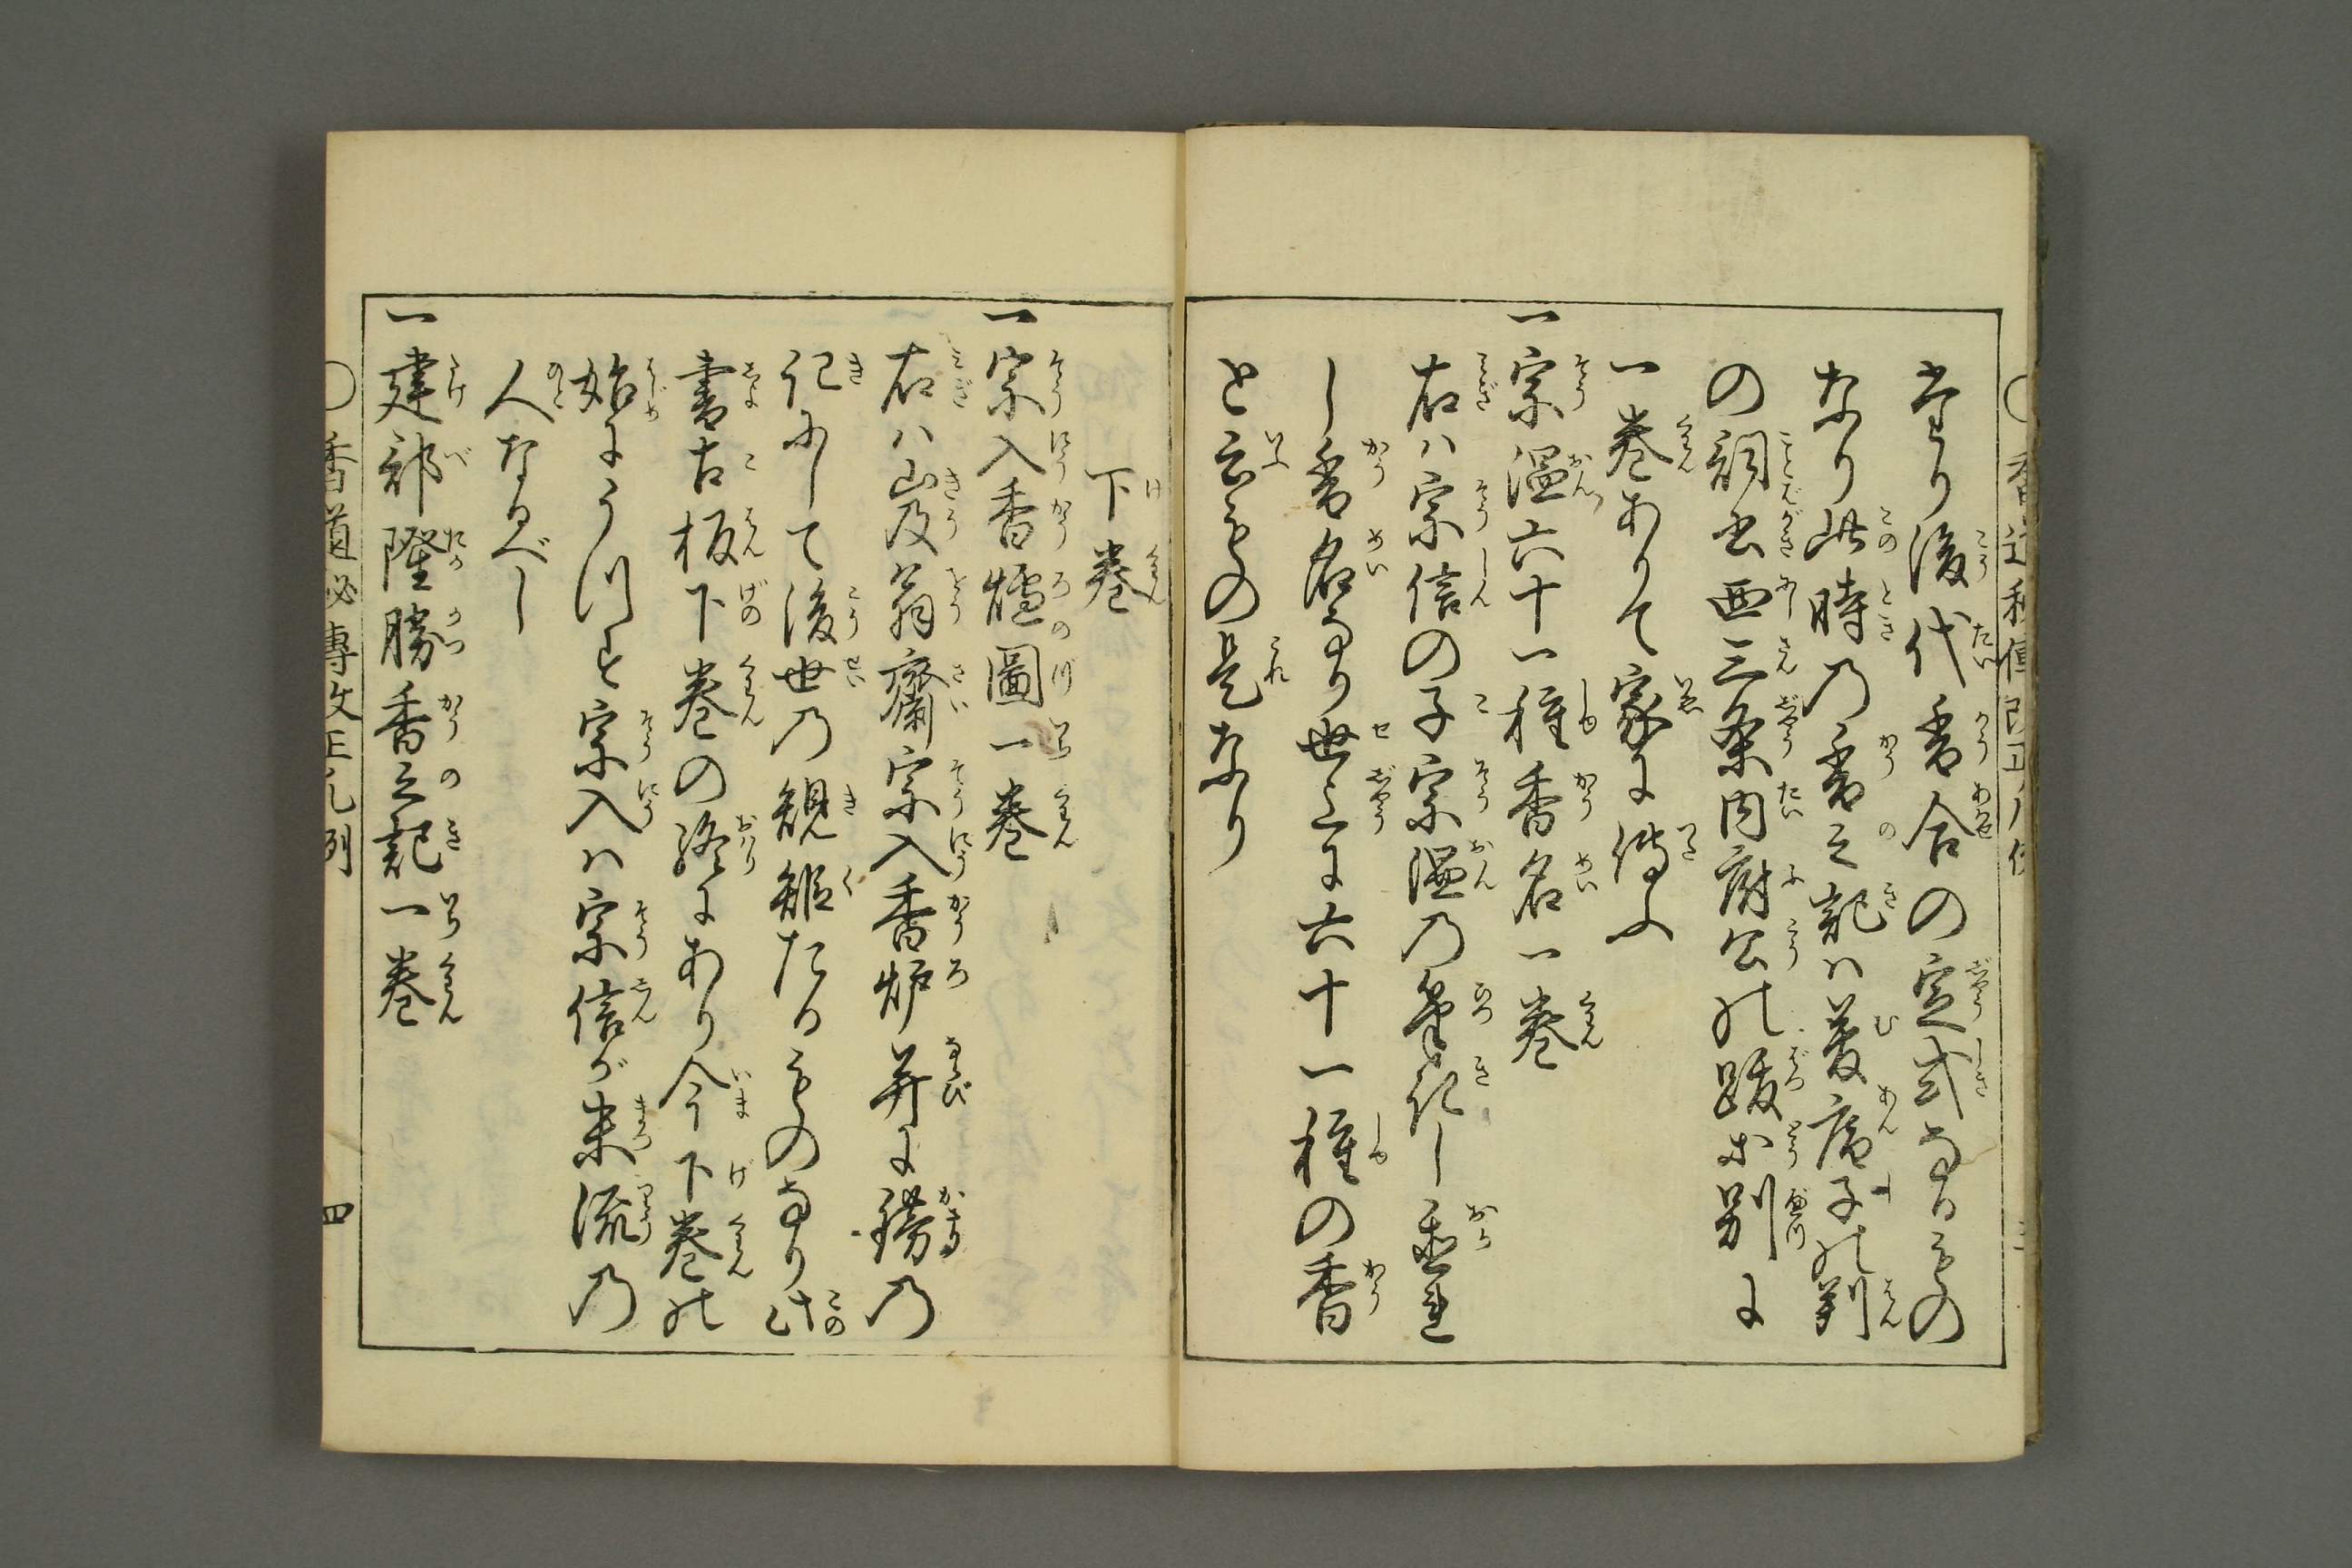 たり後代香合の定式なるもの
なり此時乃香之記ハ夢庵子の判
の詞書西三条内府公の跋等別に
一巻ありて家に伝ふ
一宗温六十一種香名一巻
右ハ宗信の子宗温乃筆記し
し香名なり世上に六十一種の香
と云もの是なり
下巻
一宗入香爐圖一巻
右ハ翁齋宗入香炉并に乃
記にして後世乃規矩たるものなり此
書古板下巻の終にあり今下巻の
始にうつす宗入ハ宗信が末流乃
人なるべし
一建部隆勝香之記一巻
香道秘傳文正凡例
四